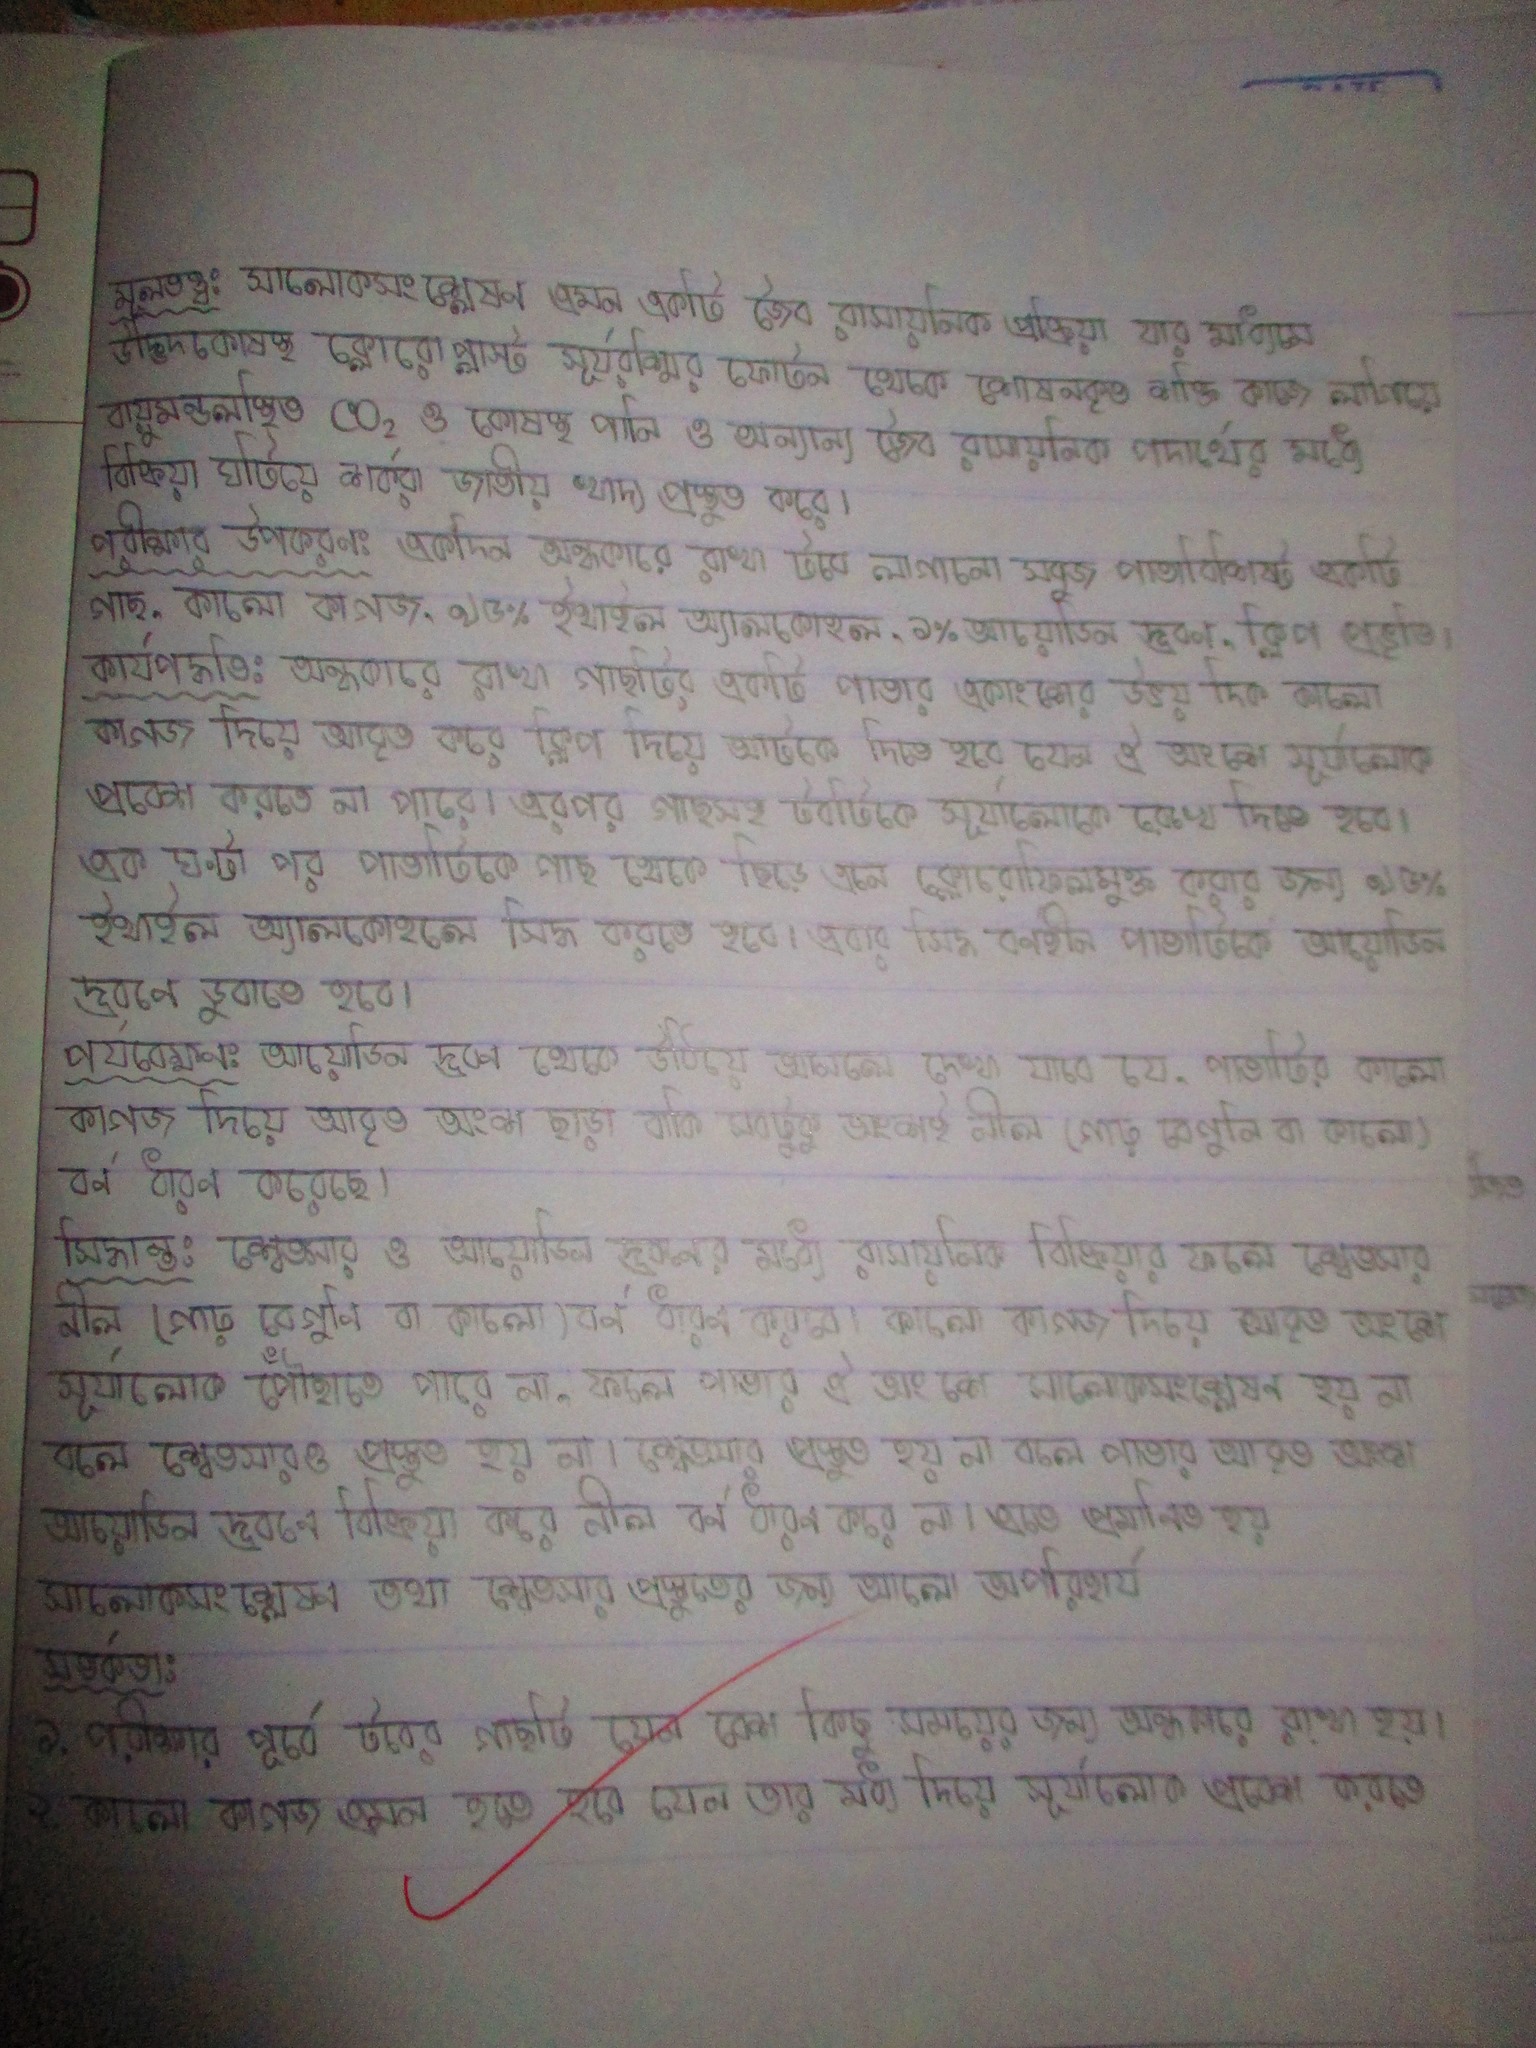 মূলতত্ত্ব: সালোকসংশ্লেষন এমন একটি জৈব রাসায়নিক প্রক্রিয়া যার মাধ্যমে
উদ্ভিদকোষস্থ ক্লোরোপ্লাস্ট সূর্যরশ্মির ফোটন থেকে শোষনকৃত শক্তি কাজে লাগিয়ে
বায়ুমন্ডলস্থিত CO₂ ও কোষস্থ পানি ও অন্যান্য জৈব রাসায়নিক পদার্থের মধ্যে
বিক্রিয়া ঘটিয়ে শর্করা জাতীয় খাদ্য প্রস্তুত করে।
পরীক্ষার উপকরণ: একদিন অন্ধকারে রাখা টবে লাগানো সবুজ পাতাবিশিষ্ট একটি
গাছ, কালো কাগজ, ৯৫% ইথাইল অ্যালকোহল, ১% আয়োডিন দ্রবণ, ক্লিপ প্রভৃতি।
কার্যপদ্ধতি: অন্ধকারে রাখা গাছটির একটি পাতার একাংশের উভয় দিক কালো
কাগজ দিয়ে আবৃত করে ক্লিপ দিয়ে আটকে দিতে হবে যেন ঐ অংশে সূর্যালোক
প্রবেশ করতে না পারে। এরপর গাছসহ টবটিকে সূর্যালোকে রেখে দিতে হবে।
এক ঘণ্টা পর পাতাটিকে গাছ থেকে ছিড়ে এনে ক্লোরোফিলমুক্ত করার জন্য ৯৫%
ইথাইল অ্যালকোহলে সিদ্ধ করতে হবে। এবার সিদ্ধ বর্নহীন পাতাটিকে আয়োডিন
দ্রবণে ডুবাতে হবে।
পর্যবেক্ষন: আয়োডিন দ্রবণ থেকে উঠিয়ে আনলে দেখা যাবে যে, পাতাটির কালো
কাগজ দিয়ে আবৃত অংশ ছাড়া বাকি সবটুকু অংশই নীল (গাঢ় বেগুনি বা কালো)
বর্ন ধারন করেছে।
সিদ্ধান্ত: শ্বেতসার ও আয়োডিন দ্রবনের মধ্যে রাসায়নিক বিক্রিয়ার ফলে শ্বেতসার
নীল (গাঢ় বেগুনি বা কালো) বর্ন ধারন করবে। কালো কাগজ দিয়ে আবৃত অংশে
সূর্যালোক পৌঁছাতে পারে না, ফলে পাতার ঐ অংশে সালোকসংশ্লেষন হয় না
বলে শ্বেতসারও প্রস্তুত হয় না। শ্বেতসার প্রস্তুত হয় না বলে পাতার আবৃত অংশ
আয়োডিন দ্রবণে বিক্রিয়া করে নীল বর্ন ধারন করে না। এতে প্রমানিত হয়
সালোকসংশ্লেষণ তথা শ্বেতসার প্রস্তুতের জন্য আলো অপরিহার্য
সতর্কতা:
১. পরীক্ষার পূর্বে টবের গাছটি যেন বেশ কিছু সময়ের জন্য অন্ধকারে রাখা হয়।
২. কালো কাগজ এমন হতে হবে যেন তার মধ্য দিয়ে সূর্যালোক প্রবেশ করতে